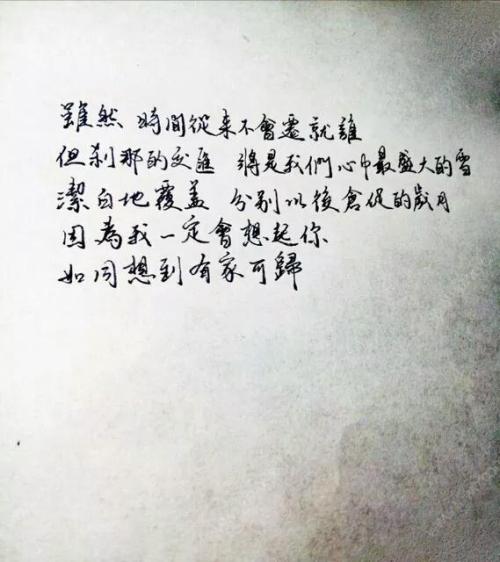 雖然 時間從来不會遷就誰
但刹那的交匯 將是我們心中最盛大的雪
潔白地覆盖 分别以後倉促的歲月
因為我一定會想起你
如同想到有家可歸